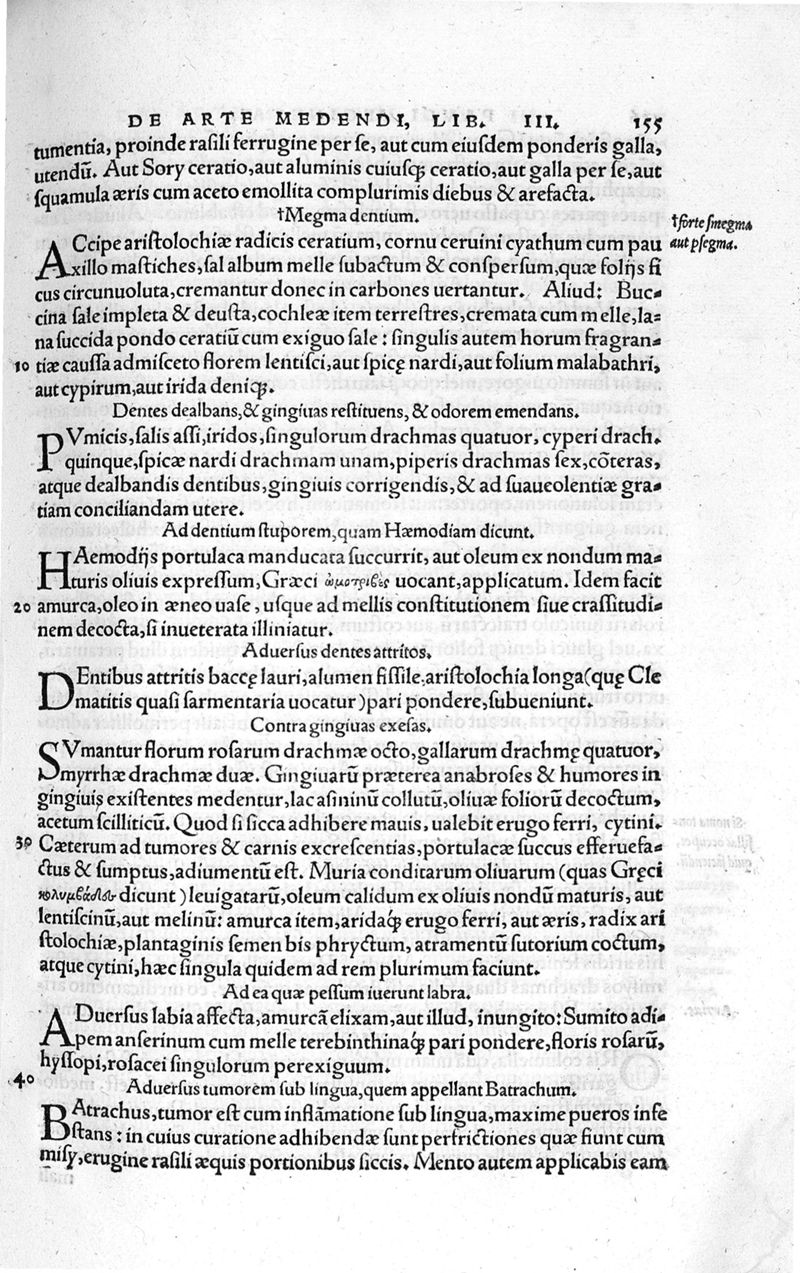 DE ARTE MEDENDI, LIB. III. 155
tumentia, proinde raſili ferrugine per ſe, aut cum eiuſdem ponderis galla,
utendũ. Aut Sory ceratio, aut aluminis cuiuſq; ceratio, aut galla per ſe, aut
ſquamula æris cum aceto emollita complurimis diebus & arefacta.
†Megma dentium.
†forte ſmegma
aut pſegma.
ACcipe ariſtolochiæ radicis ceratium, cornu ceruini cyathum cum pau
xillo maſtiches, ſal album melle ſubactum & conſperſum, quæ folijs fi
cus circunuoluta, cremantur donec in carbones uertantur. Aliud: Buc-
cina ſale impleta & deuſta, cochleæ item terreſtres, cremata cum melle, la-
na ſuccida pondo ceratiũ cum exiguo ſale: ſingulis autem horum fragran-
10 tiæ cauſſa admiſceto florem lentiſci, aut ſpicę nardi, aut folium malabathri,
aut cypirum, aut irida deniq;.
Dentes dealbans, & gingiuas reſtituens, & odorem emendans.
PVmicis, ſalis aſſi, iridos, ſingulorum drachmas quatuor, cyperi drach.
quinque, ſpicæ nardi drachmam unam, piperis drachmas ſex, cõteras,
atque dealbandis dentibus, gingiuis corrigendis, & ad ſuaueolentiæ gra-
tiam conciliandam utere.
Ad dentium ſtuporem, quam Hæmodiam dicunt.
HAemodijs portulaca manducata ſuccurrit, aut oleum ex nondum ma-
turis oliuis expreſſum, Græci ὠμοτριβὲς uocant, applicatum. Idem facit
20 amurca, oleo in æneo uaſe, uſque ad mellis conſtitutionem ſiue craſſitudi-
nem decocta, ſi inueterata illiniatur.
Aduerſus dentes attritos.
DEntibus attritis baccę lauri, alumen fiſſile, ariſtolochia longa (quę Cle
matitis quaſi ſarmentaria uocatur) pari pondere, ſubueniunt.
Contra gingiuas exeſas.
SVmantur florum roſarum drachmæ octo, gallarum drachmę quatuor,
myrrhæ drachmæ duæ. Gingiuarũ præterea anabroſes & humores in
gingiuis exiſtentes medentur, lac aſininũ collutũ, oliuæ foliorũ decoctum,
acetum ſcilliticũ. Quod ſi ſicca adhibere mauis, ualebit erugo ferri, cytini.
30 Cæterum ad tumores & carnis excreſcentias, portulacæ ſuccus efferuefa-
ctus & ſumptus, adiumentũ eſt. Muria conditarum oliuarum (quas Gręci
dicunt) leuigatarũ, oleum calidum ex oliuis nondũ maturis, aut
lentiſcinũ, aut melinũ: amurca item, aridaq; erugo ferri, aut æris, radix ari
ſtolochiæ, plantaginis ſemen bis phryctum, atramentũ ſutorium coctum,
atque cytini, hæc ſingula quidem ad rem plurimum faciunt.
Ad ea quæ peſſum iuerunt labra.
ADuerſus labia affecta, amurcã elixam, aut illud, inungito: Sumito adi-
pem anſerinum cum melle terebinthinaq; pari pondere, floris roſarũ,
hyſſopi, roſacei ſingulorum perexiguum.
40 Aduerſus tumorem ſub lingua, quem appellant Batrachum.
BAtrachus, tumor eſt cum inflãmatione ſub lingua, maxime pueros infe
ſtans: in cuius curatione adhibendæ ſunt perfrictiones quæ fiunt cum
miſy, erugine raſili æquis portionibus ſiccis. Mento autem applicabis eam